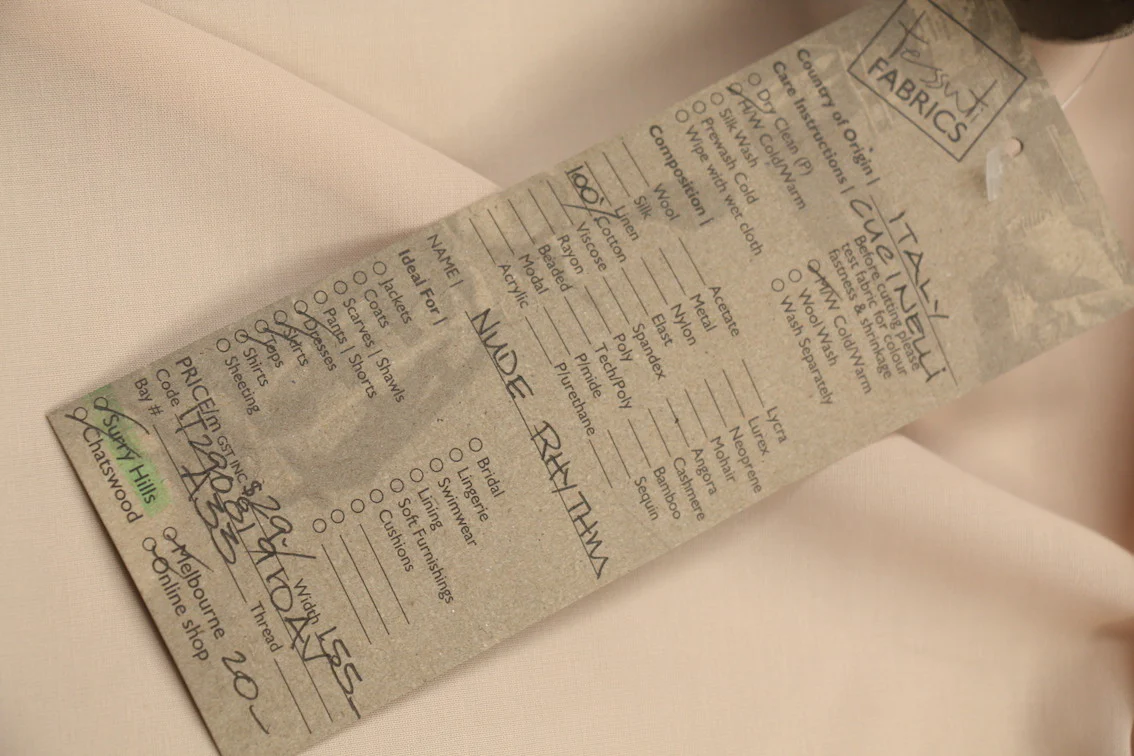 tessuti
FABRICS
Country of Origin | ITALY
Care Instructions | CUCINELLI
Dry Clean (P)
H/W Cold/Warm
Silk Wash
Prewash Cold
Wipe with wet cloth
Before cutting please
test fabric for colour
fastness & shrinkage
M/W Cold/Warm
Wool Wash
Wash Separately
Composition |
Wool
Silk
Linen
100% Cotton
Viscose
Rayon
Beaded
Modal
Acrylic
Acetate
Metal
Nylon
Elast
Spandex
Poly
Tech/Poly
P/mide
P/urethane
Lycra
Lurex
Neoprene
Mohair
Angora
Cashmere
Bamboo
Sequin
NAME | NUDE RHYTHM
Ideal For |
Jackets
Coats
Scarves | Shawls
Pants | Shorts
Dresses
Skirts
Tops
Shirts
Sheeting
Bridal
Lingerie
Swimwear
Lining
Soft Furnishings
Cushions
PRICE/m GST INC $29- Width 155
Code
Bay # A33 Thread
Surry Hills
Chatswood
Melbourne
Online shop
20-